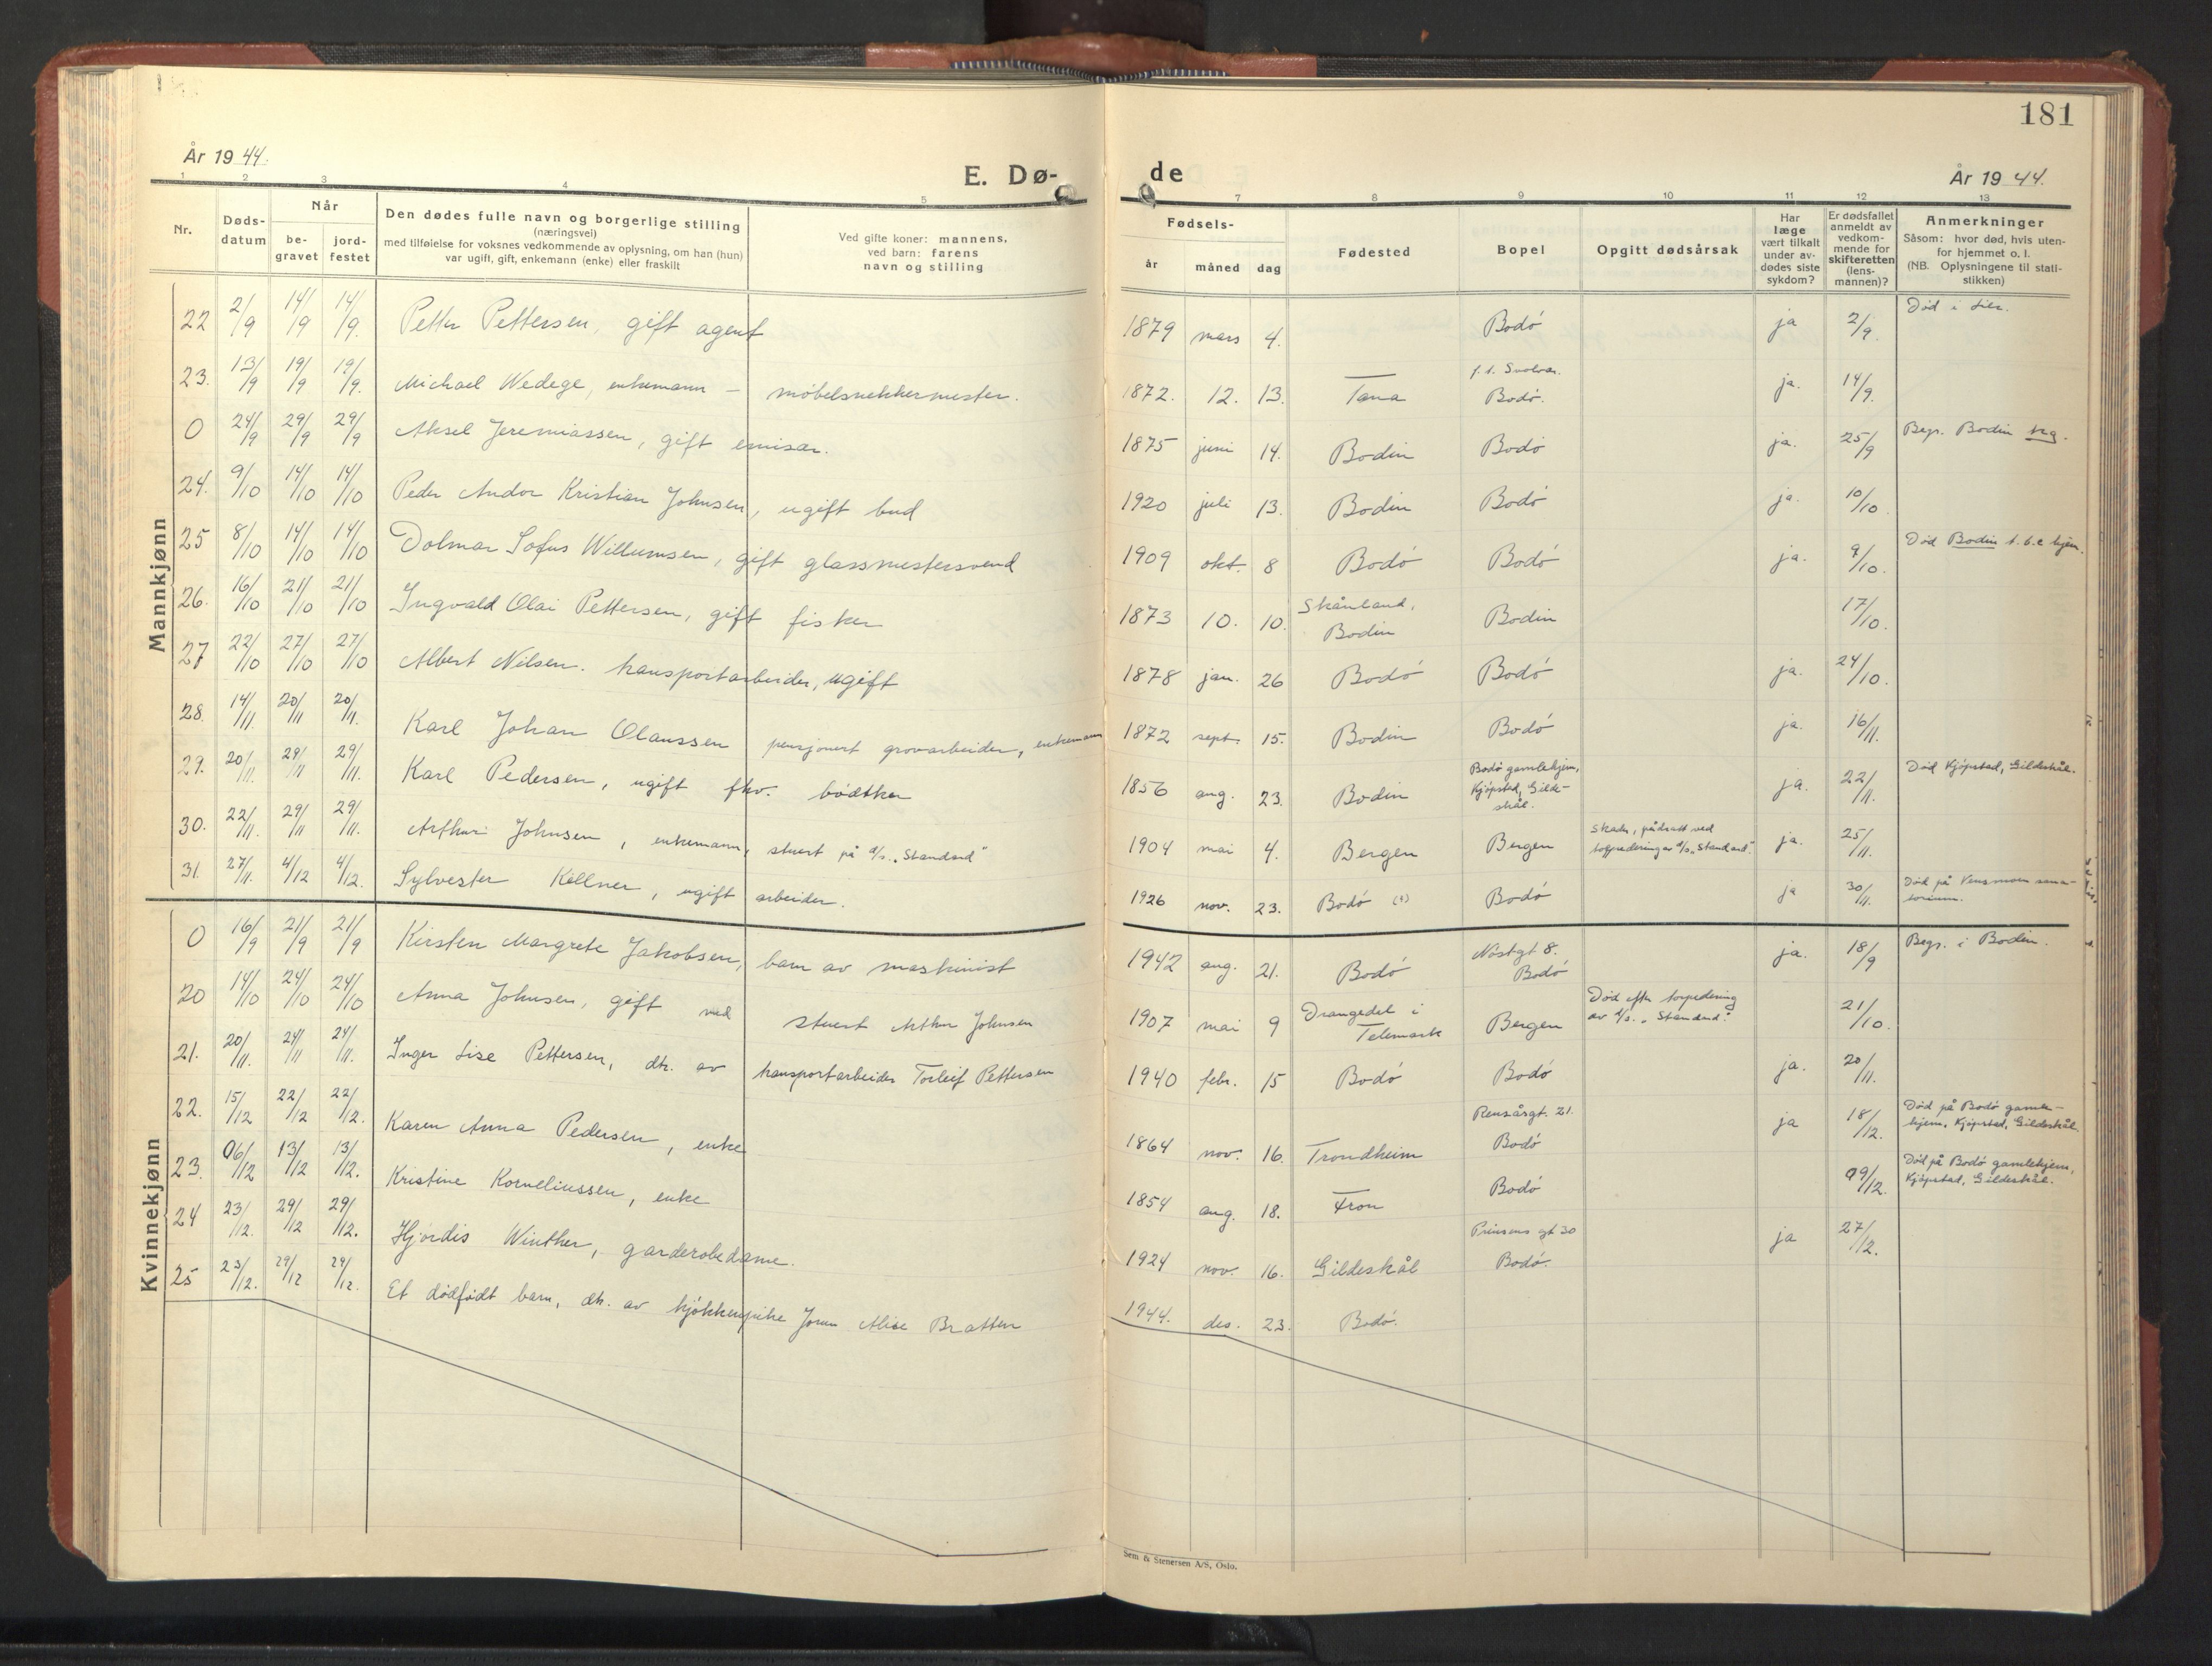 181
År 1944.
E. Dø-
de
År 1944.
1 2 3 4 5 7 8 9 10 11 12 13
Nr.
Døds-
datum
Når
be-
gravet
jord-
festet
Den dødes fulle navn og borgerlige stilling
(næringsvei)
med tilføielse for voksnes vedkommende av oplysning, om han (hun)
var ugift, gift, enkemann (enke) eller fraskilt
Ved gifte koner: mannens,
ved barn: farens
navn og stilling
Fødsels-
år måned dag
Fødested
Bopel
Opgitt dødsårsak
Har
læge
vært tilkalt
under av-
dødes siste
sykdom?
Er dødsfallet
anmeldt av
vedkom-
mende for
skifteretten
(lens-
mannen)?
Anmerkninger
Såsom: hvor død, hvis uten-
for hjemmet o. l.
(NB. Oplysningene til stati-
stikken)
Mannkjønn
22 2/9 14/9 14/9. Petter Pettersen, gift agent 1879 mars 4. Bodó ja 2/9. Død i Lier.
23. 13/9 19/9 19/9. Michael Wedege, enkemann – møbelsnekkermester. 1872. 12. 13. Tana f. t. Svolvær. Bodó. ja. 14/9.
0 24/9 29/9 29/9 Aksel Jeremiassen, gift emisær. 1875 juni 14. Bodin Bodó ja. 25/9 Begr. Bodin
24. 9/10 14/10 14/10 Peder Andor Kristian Johnsen, ugift bud 1920 juli 13. Bodin Bodó ja. 10/10
25 8/10 14/10 14/10 Dolmar Sofus Willumsen, gift glassmestersvend 1909 okt. 8 Bodó Bodó ja. 9/10. Død Bodin t.b.c hjem.
26. 16/10 21/10 21/10 Ingvald Olai Pettersen, gift fisker 1873 10. 10. Skånland, Bodin Bodin 17/10.
27 22/10 27/10 27/10 Albert Nilsen. transportarbeider, ugift 1878 jan. 26 Bodó Bodó ja. 24/10.
28. 14/11. 20/11 20/11. Karl Johan Olaussen pensjonert grovarbeider, enkemann 1872 sept. 15. Bodin Bodó ja. 16/11.
29. 20/11. 29/11 29/11. Karl Pedersen, ugift fhv. bødtker 1856 aug. 23. Bodin Bodó gamlehjem, Kjópstad, Gilde-
skål. ja. 22/11. Død Kjópstad, Gildeskål.
30. 22/11. 29/11 29/11. Arthur Johnsen, enkemann, stuert på s/s. „Standard" 1904 mai 4. Bergen Bergen Skader, pådratt ved
torpederingen s/s. „Standard". ja. 25/11.
31. 27/11. 4/12 4/12. Sylvester Kellner, ugift arbeider. 1926 nov. 23. Bodó (?) Bodó ja 30/11. Død på Vensmoen sana-
torium.
Kvinnekjønn
0 16/9 21/9 21/9 Kirsten Margrete Jakobsen, barn av maskinist 1942 aug. 21. Bodó Nóstgt 8. Bodó ja. 18/9 Begr. i Bodin.
20 14/10 24/10 24/10 Anna Johnsen, gift med stuert Arthur Johnsen 1907 mai 9 Drangedal i Telemark Bergen Død efter torpedering
av s/s. „Standard". 21/10.
21. 20/11. 24/11 24/11. Inger Lise Pettersen, dtr. av transportarbeider Torleif Pettersen 1940 febr. 15 Bodó Bodó ja. 20/11.
22. 15/12 22/12 22/12. Karen Anna Pedersen, enke 1864 nov. 16. Trondheim Rensåsgt. 21. Bodó ja 18/12. Død på Bodó gamle-
hjem, Kjópstad, Gildeskål.
23. 06/12 13/12 13/12. Kristine Korneliussen, enke 1854 aug. 18. Fron Bodó 09/12. Død på Bodó gamlehjem,
Kjópstad, Gildeskål.
24 23/12. 29/12 29/12. Hjórdis Winther, garderobedame. 1924 nov. 16. Gildeskål Prinsens gt 30 Bodó. ja 27/12.
25 23/12. 29/12 29/12. Et dødfødt barn, dtr. av kjøkkenpike Jorun Alise Bratten 1944. des. 23. Bodó.
Sem & Stenersen A/S, Oslo.